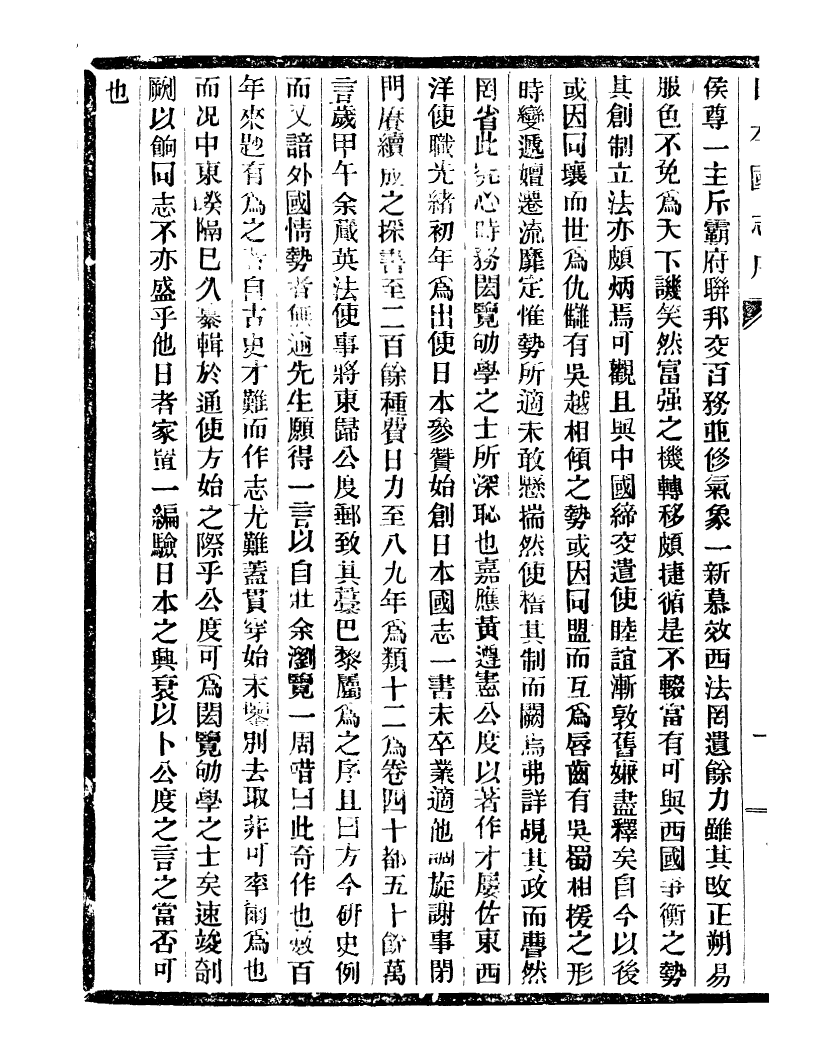 日本國志序
侯尊一主斥霸府聯邦交百務並修氣象一新慕效西法罔遺餘力雖其改正朔易
服色不免爲天下譏笑然富强之機轉移頗捷循是不輟當有可與西國爭衡之勢
其創制立法亦頗炳焉可觀且與中國締交遣使睦誼漸敦舊嫌盡釋矣自今以後
或因同壤而世爲仇讎有吳越相傾之勢或因同盟而互爲唇齒有吳蜀相援之形
時變遞嬗遷流靡定惟勢所適未敢懸揣然使稽其制而闕焉弗詳覘其政而瞢然
罔省此究心時務閎覽劬學之士所深恥也嘉應黃遵憲公度以著作才屢佐東西
洋使職光緒初年爲出使日本參贊始創日本國志一書未卒業適他調旋謝事閉
門賡續成之採書至二百餘種費日力至八九年爲類十二爲卷四十都五十餘萬
言歲甲午余蕆英法使事將東歸公度郵致其藁巴黎屬爲之序且曰方今研史例
而又諳外國情勢者無逾先生願得一言以自壯余瀏覽一周喟曰此奇作也數百
年來尠有爲之者自古史才難而作志尤難蓋貫穿始末鑒別去取非可率爾爲也
而况中東暌隔已久纂輯於通使方始之際乎公度可爲閎覽劬學之士矣速竣剞
劂以餉同志不亦盛乎他日者家置一編驗日本之興衰以卜公度之言之當否可
也
一